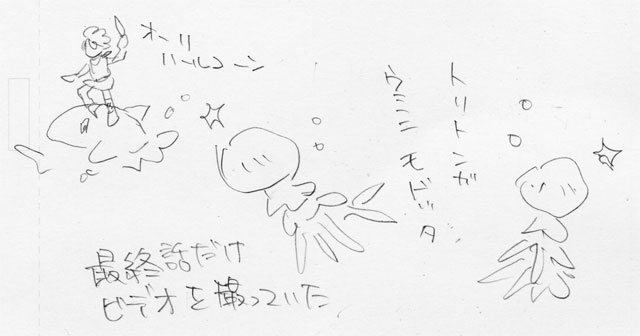 オーリ
ハールコーン
トリトンガ
ウミニ モドッタ
最終話だけ
ビデオを撮っていた